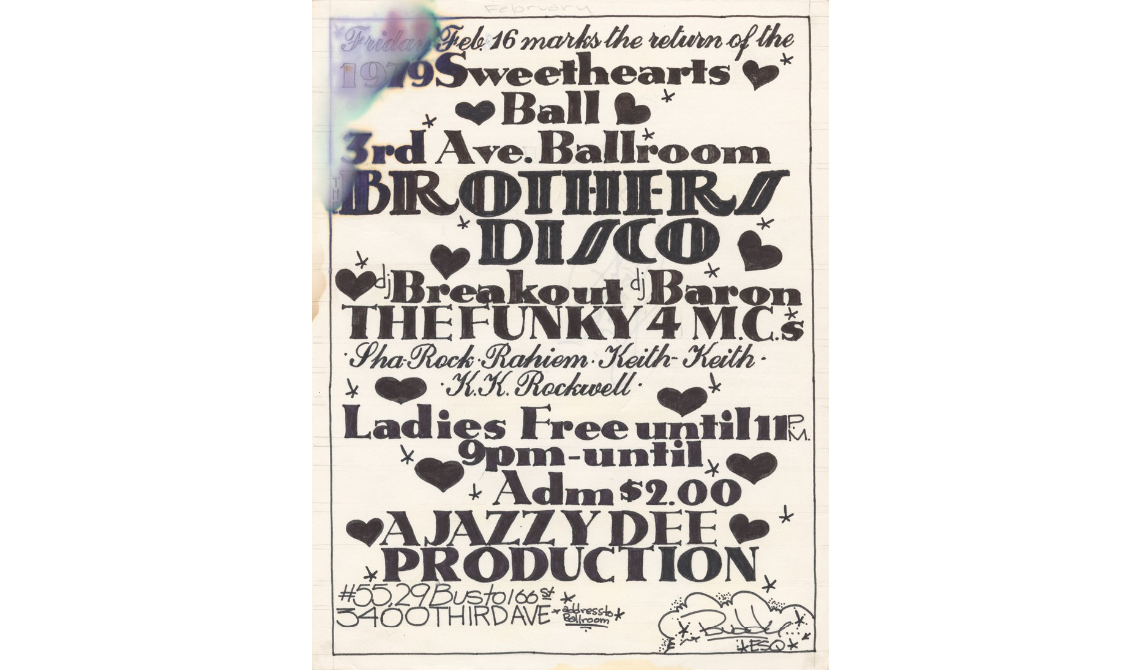 February
Friday Feb. 16 marks the return of the
1979 Sweethearts
Ball
3rd Ave. Ballroom
THE BROTHERS
DISCO
dj Breakout dj Baron
THE FUNKY 4 M.C.s
· Sha-Rock · Rahiem · Keith-Keith ·
· K.K. Rockwell ·
Ladies Free until 11 P.M.
9pm-until
Adm $2.00
A JAZZY DEE
PRODUCTION
#55, 29 Bus to 166 st
3400 THIRD AVE *address to Ballroom*
Buddy
ESQ